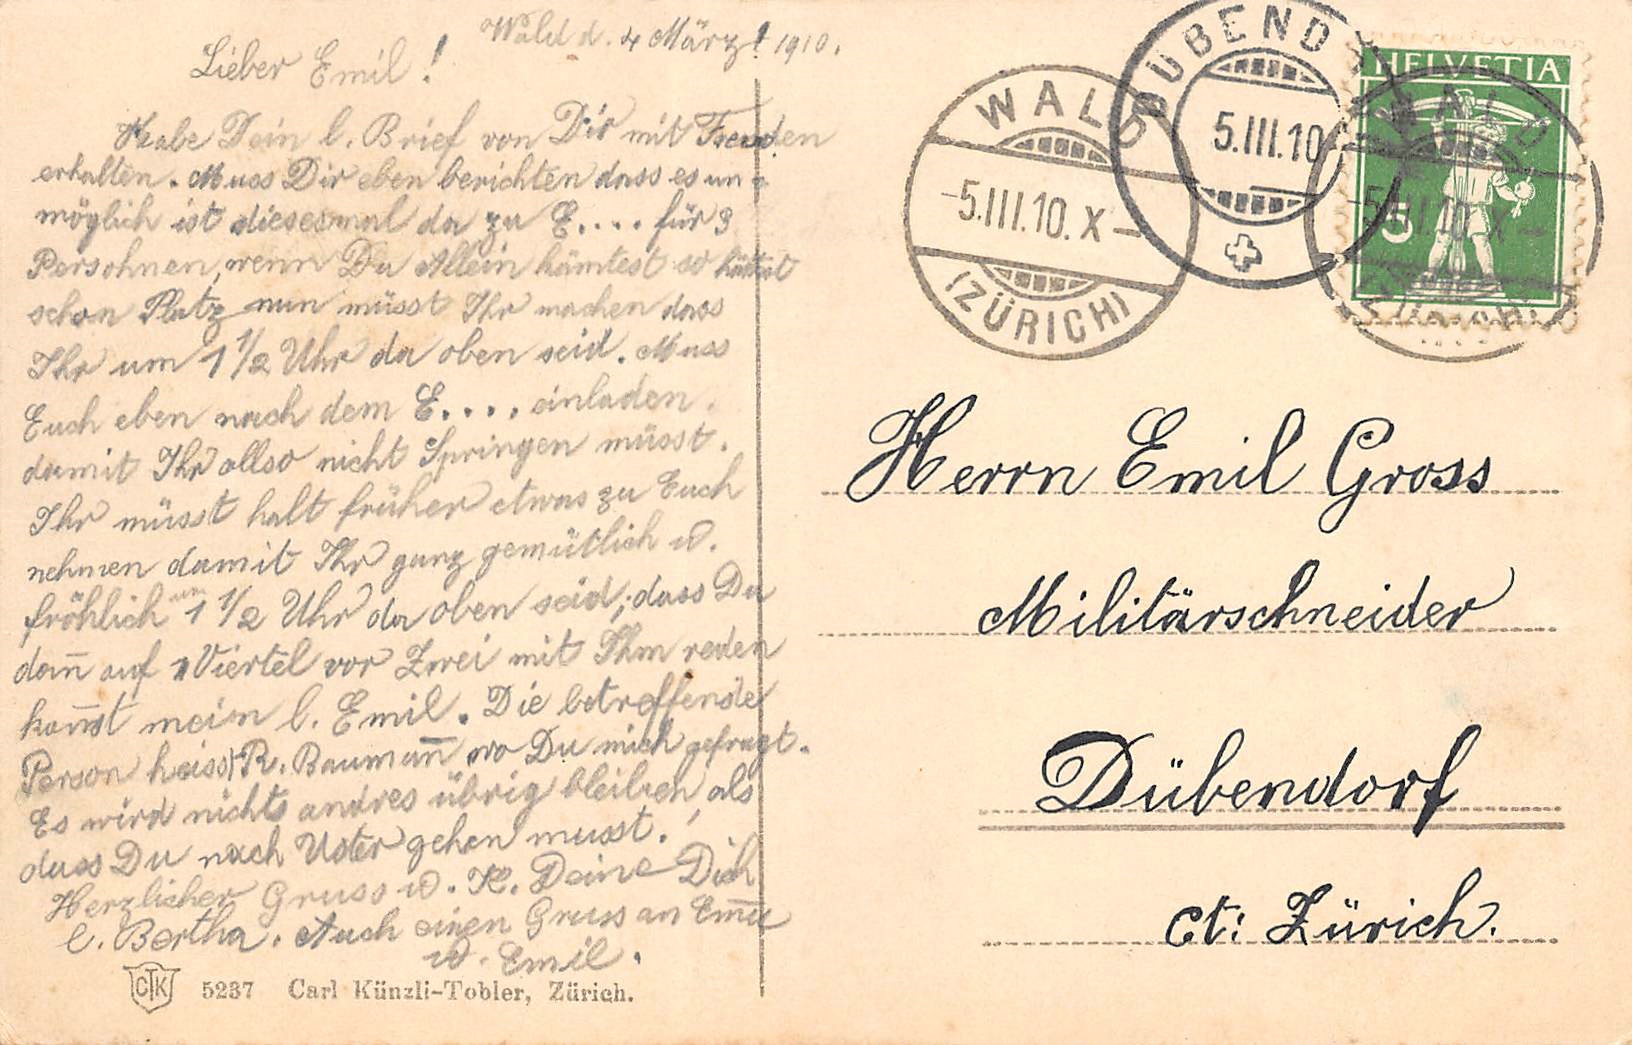 Wald d. 4 März! 1910.
Lieber Emil!
Habe Dein l. Brief von Dir mit Freuden
erhalten. Muss Dir eben berichten dass es un=
möglich ist diesesmal da zu E.... für 3
Persohnen, wenn Du Allein kämtest so hättest
schon Platz nun müsst Ihr machen dass
Ihr um 1 1/2 Uhr da oben seid. Muss
Euch eben nach dem E.... einladen.
damit Ihr allso nicht Springen müsst.
Ihr müsst halt früher etwas zu Euch
nehmen damit Ihr ganz gemütlich u.
fröhlich um 1 1/2 Uhr da oben seid; dass Du
dan̄ auf 1 Viertel vor Zwei mit Ihm reden
kan̄st mein l. Emil. Die betreffende
Person heisst R. Bauman̄ wo Du mich gefragt.
Es wird nichts andres übrig bleiben als
dass Du nach Uster gehen musst.
Herzlicher Gruss u. K. Deine Dich
l. Bertha. Auch einen Gruss an
u. Emil.
CTK 5237 Carl Künzli-Tobler, Zürich.
WALD
-5.III.10.X-
(ZÜRICH)
DÜBENDO
5.III.10
HELVETIA
5
WALD
-5.III.10.X-
(ZÜRICH)
Herrn Emil Gross
Militärschneider
Dübendorf
Ct: Zürich.